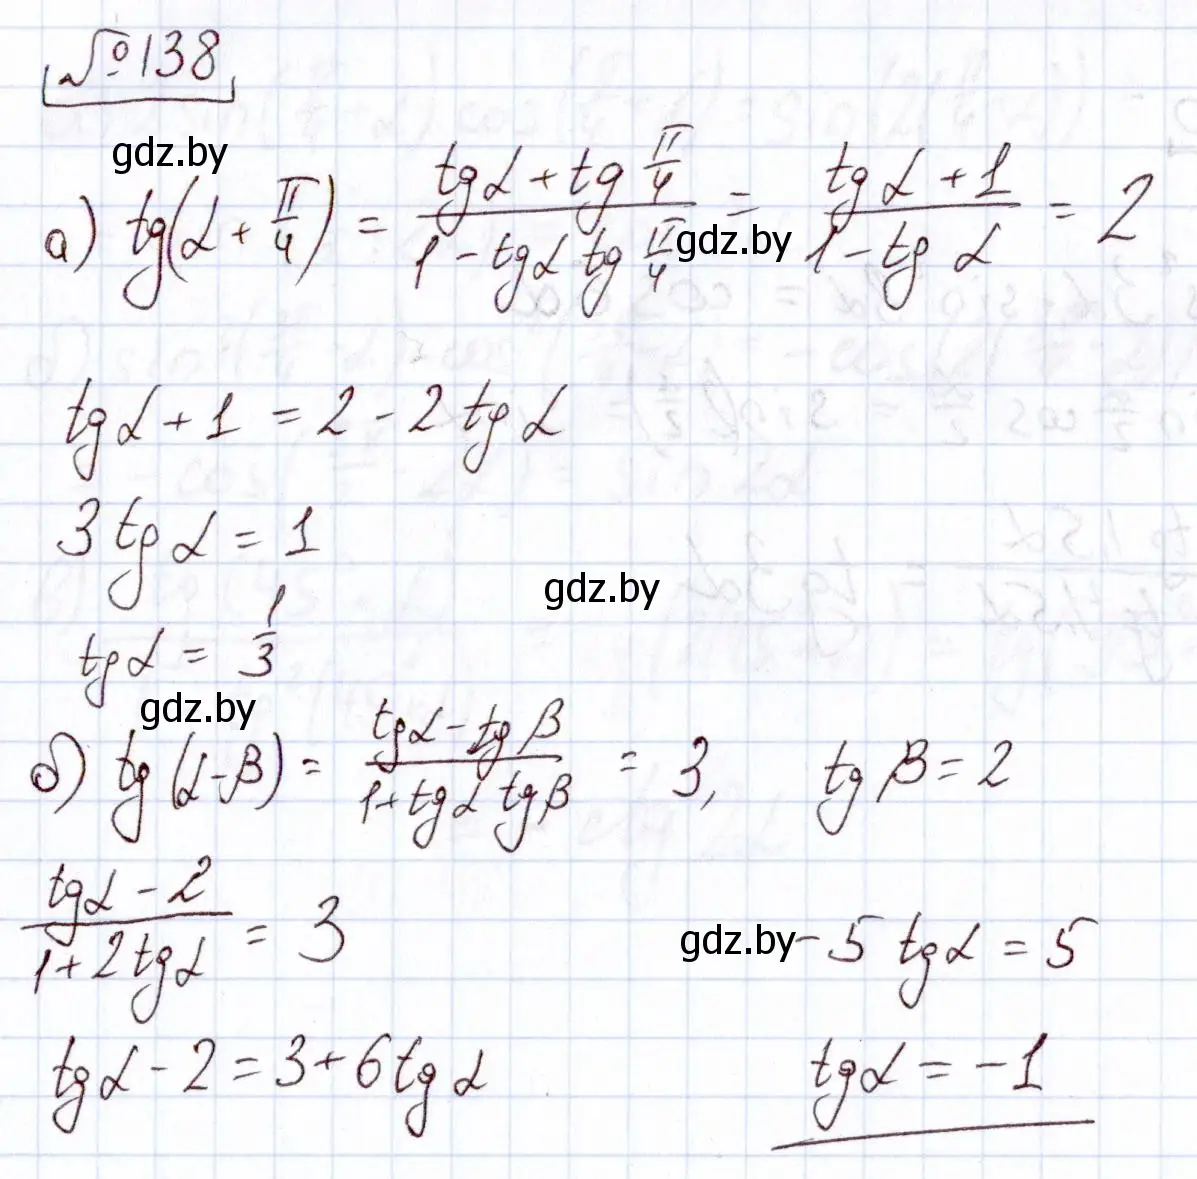 №138
gdz.by
а) tg(α + π/4) = (tgα + tg π/4)/(1 - tgα tg π/4) = (tg α + 1)/(1 - tg α) = 2
gdz.by
tgα + 1 = 2 - 2 tg α
3 tg α = 1
gdz.by
tgα = 1/3
gdz.by
б) tg (α - β) = (tgα - tg β)/(1 + tgα tgβ) = 3, tg β = 2
(tgα - 2)/(1 + 2 tgα) = 3
gdz.by
-5 tgα = 5
tgα - 2 = 3 + 6 tg α
tgα = -1